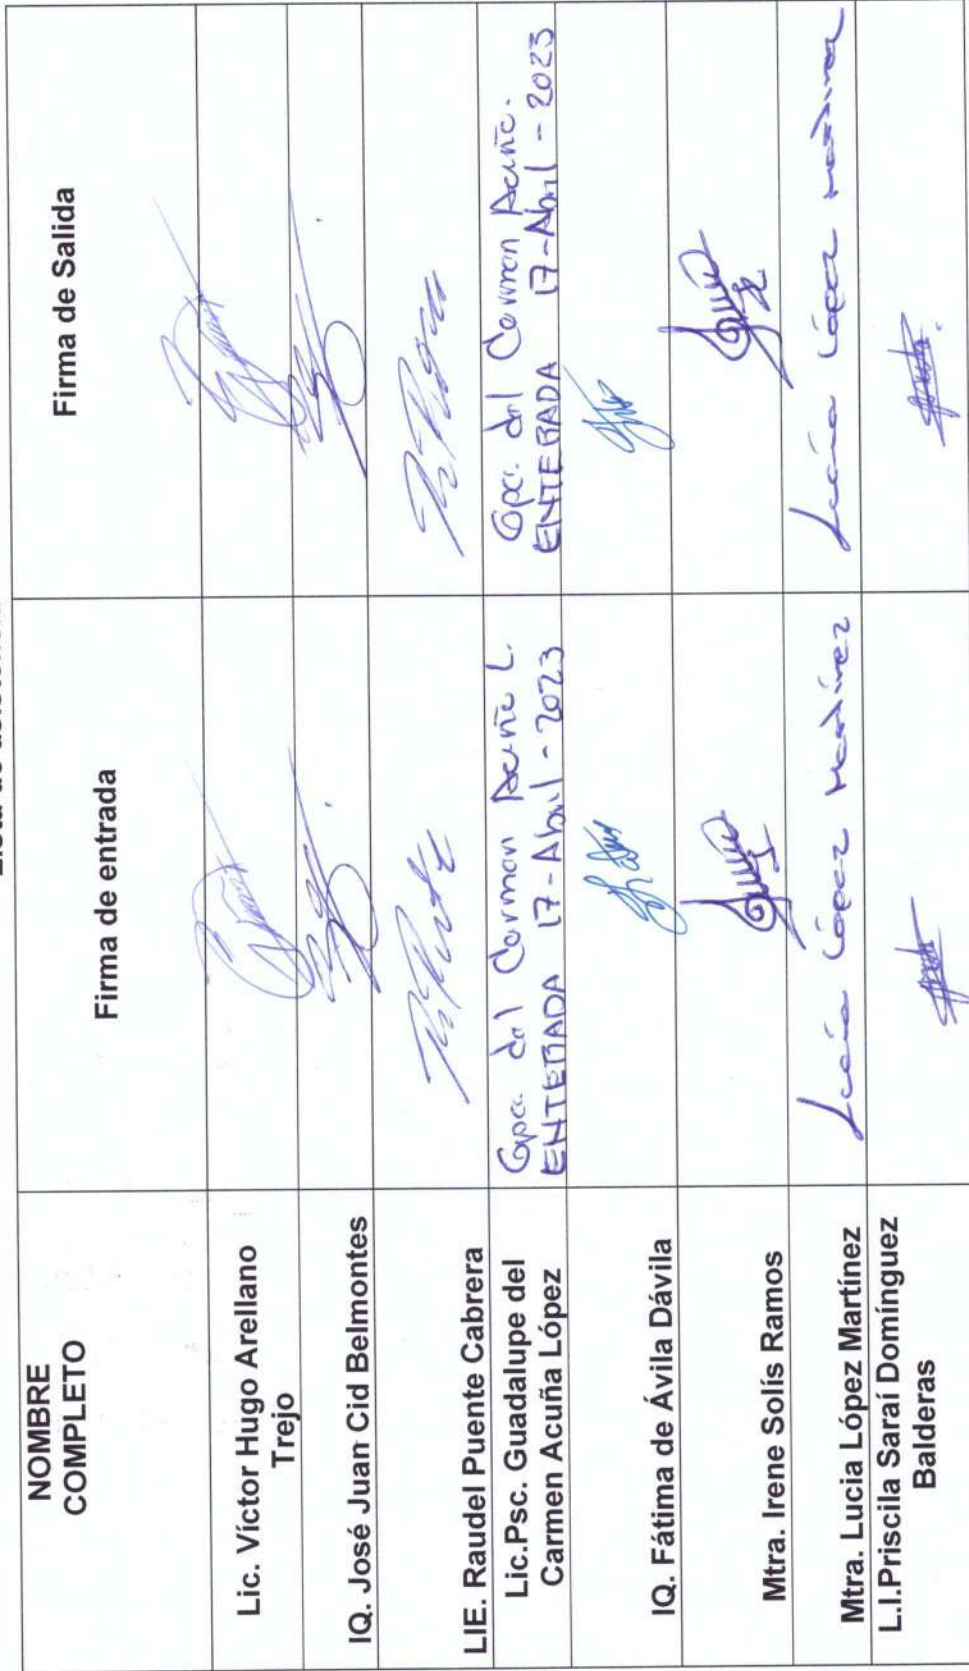 NOMBRE
COMPLETO
Firma de entrada
Firma de Salida
Lic. Víctor Hugo Arellano
Trejo
IQ. José Juan Cid Belmontes
LIE. Raudel Puente Cabrera
Lic.Psc. Guadalupe del
Carmen Acuña López
Gpa. del Carmen Acuña L.
ENTERADA 17-Abril-2023
Gpa. del Carmen Acuña.
ENTERADA 17-Abril-2023
IQ. Fátima de Ávila Dávila
Mtra. Irene Solís Ramos
Mtra. Lucia López Martínez
Lucía López Martínez
Lucía López Martínez
L.I.Priscila Saraí Domínguez
Balderas